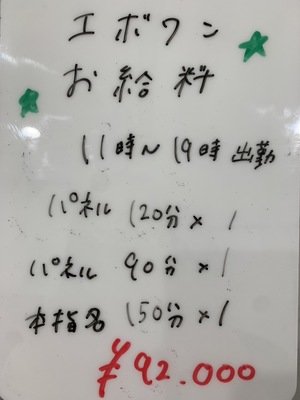 エボワン
お給料
11時~19時 出勤
パネル 120分×1
パネル 90分×1
本指名 150分×1
¥92.000